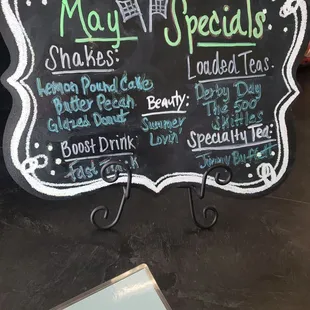 May Specials
Shakes:
Lemon Pound Cake
Butter Pecan
Glazed Donut
Boost Drink
Fast Track
Beauty:
Summer
Lovin'
Loaded Teas:
Derby Day
The 500
Skittles
Specialty Tea:
Jimmy Buffett